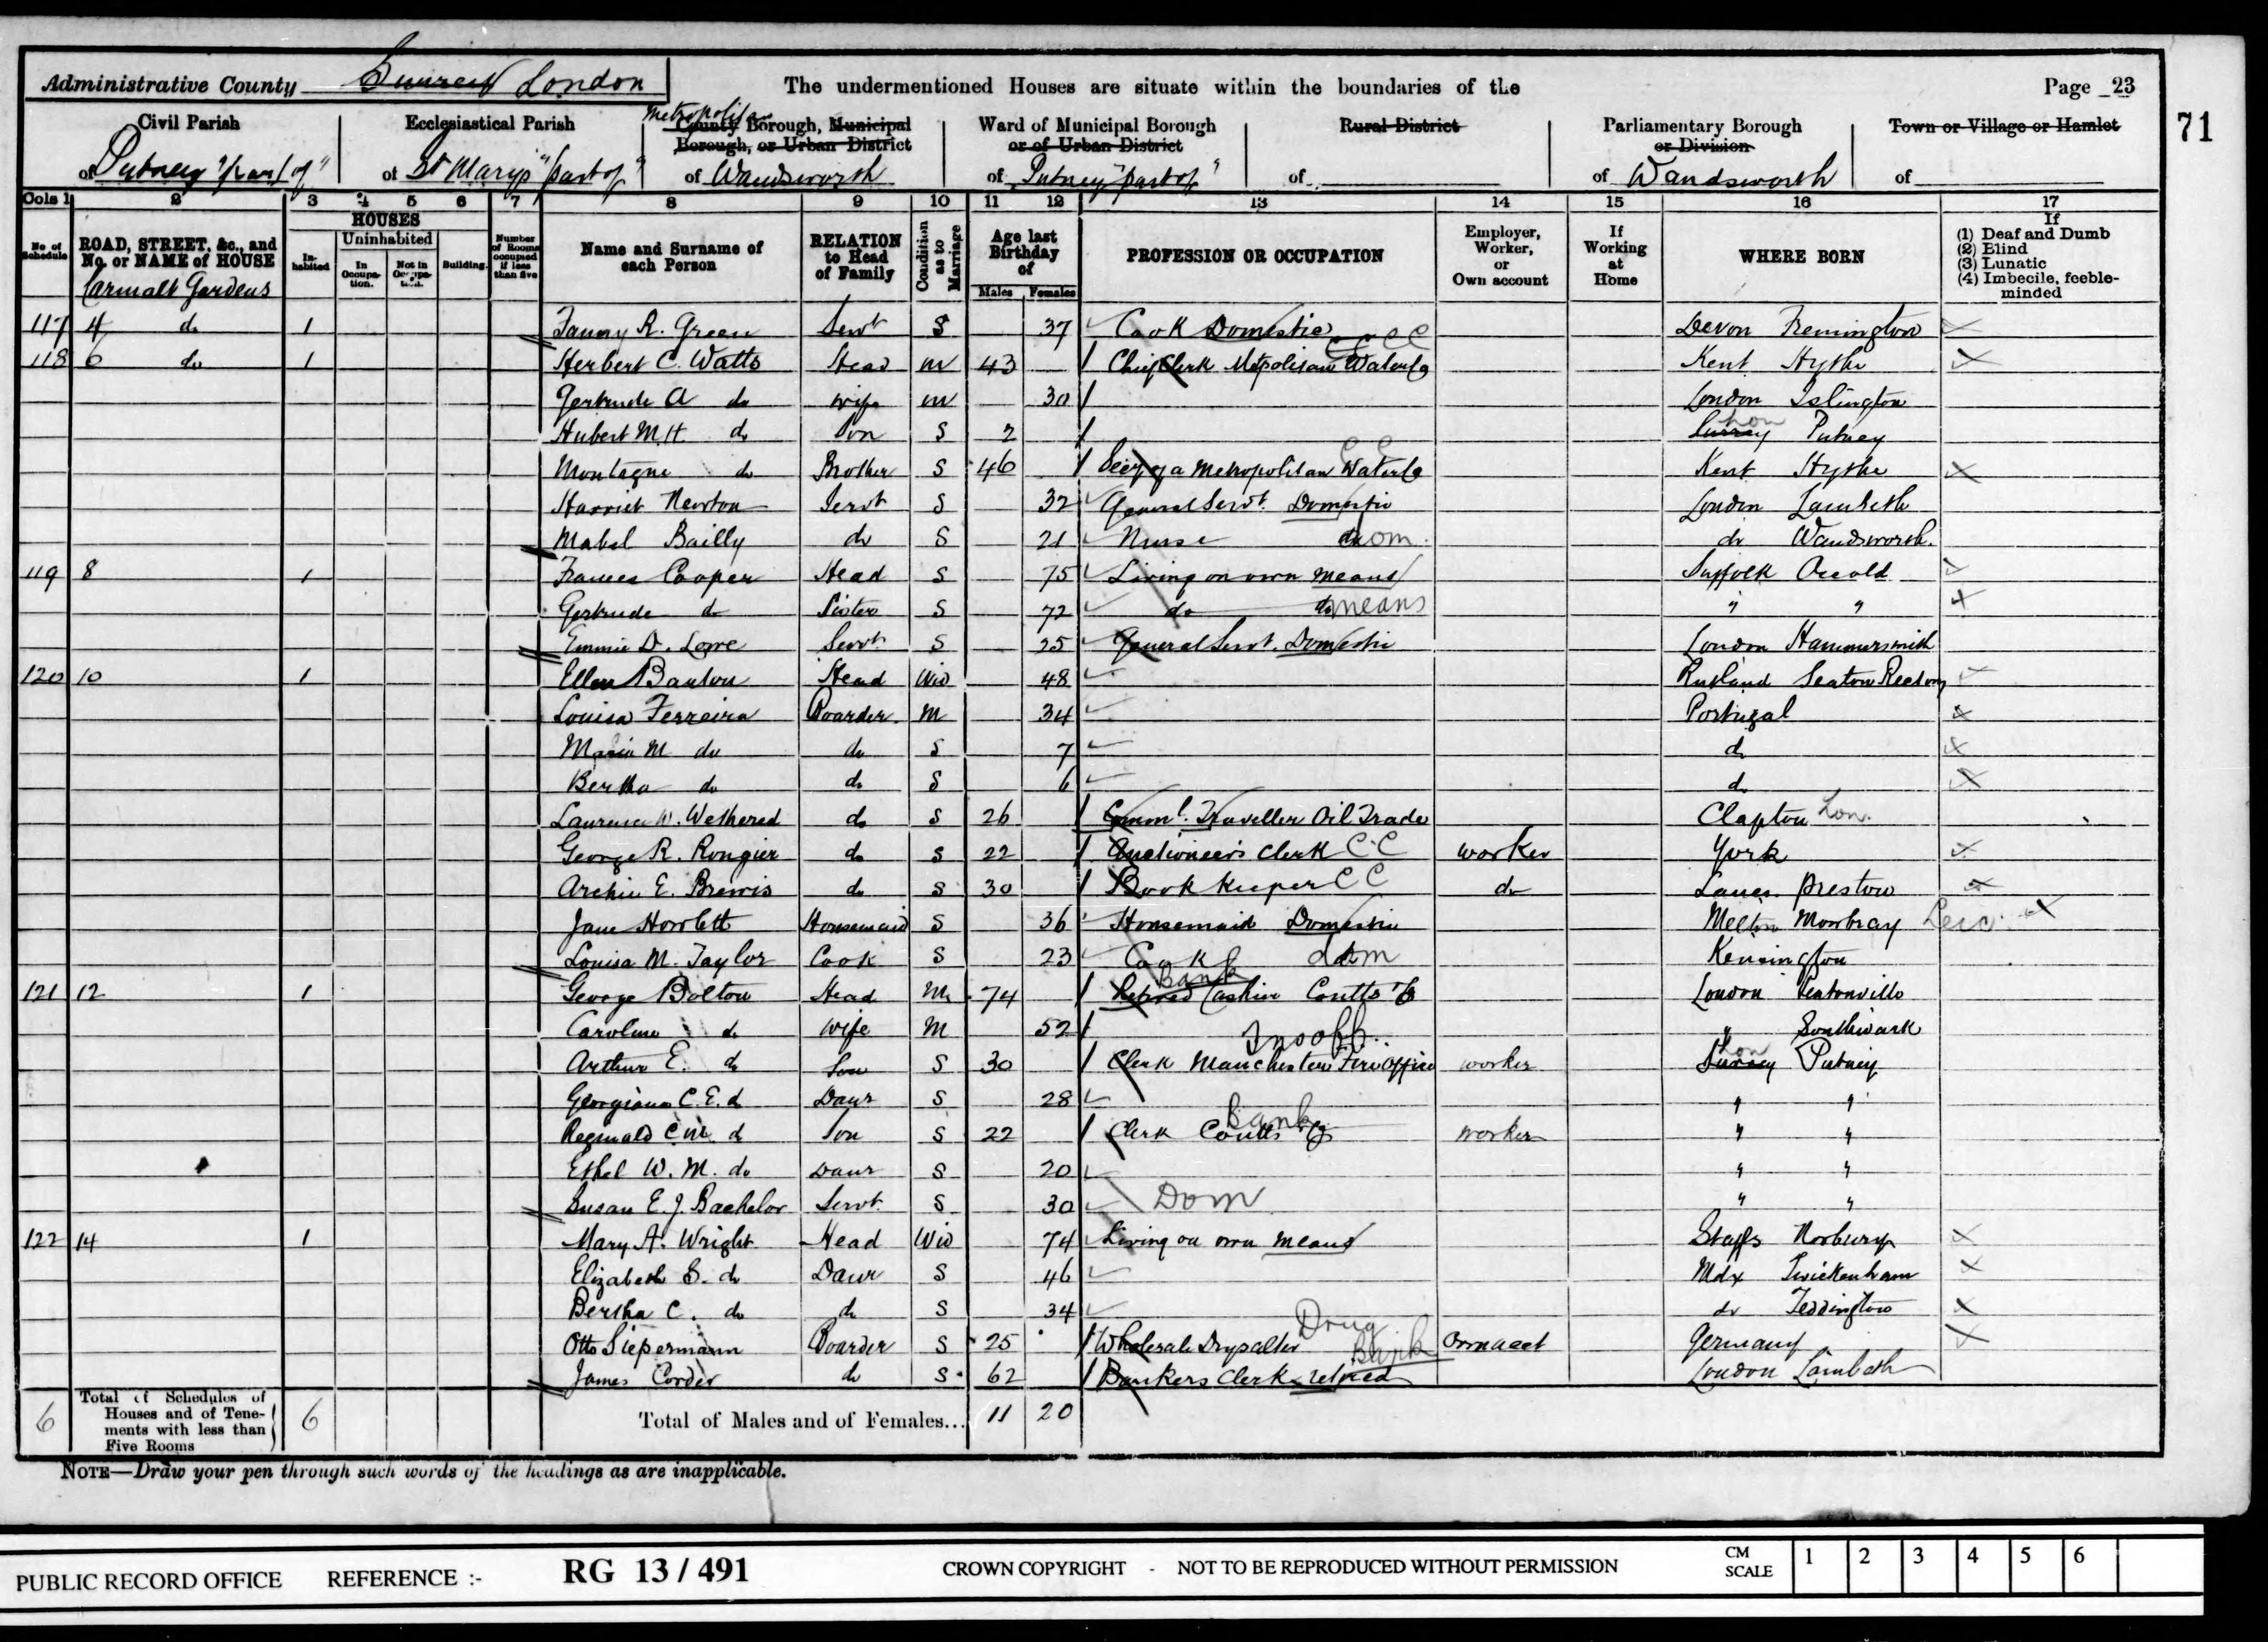 Administrative County Surrey London
The undermentioned Houses are situate within the boundaries of the
Page 23
71
Civil Parish
of Putney "part of"
Ecclesiastical Parish
of St Mary's "part of"
Metropolitan
County Borough, Municipal
Borough, or Urban District
of Wandsworth
Ward of Municipal Borough
or of Urban District
of Putney "part of"
Rural District
of
Parliamentary Borough
or Division
of Wandsworth
Town or Village or Hamlet
of
Cols 1 2 3 4 5 6 7 8 9 10 11 12 13 14 15 16 17
No. of Schedule
ROAD, STREET, &c., and No. or NAME of HOUSE
HOUSES
Inhabited
Uninhabited
In Occupation.
Not in Occupation.
Building.
Number of Rooms occupied if less than five
Name and Surname of each Person
RELATION to Head of Family
Condition as to Marriage
Age last Birthday of
Males Females
PROFESSION OR OCCUPATION
Employer, Worker, or Own account
If Working at Home
WHERE BORN
If
(1) Deaf and Dumb
(2) Blind
(3) Lunatic
(4) Imbecile, feeble-minded
Carmalt Gardens
117 4 do 1 Fanny R. Green Servt S 37 Cook Domestic Devon Fremington
118 6 do 1 Herbert C. Watts Head M 43 Chief Clerk Metpolisan Water Co CC Kent Hythe
Gertrude A do wife M 30 London Islington
Hubert M.H. do Son S 2 Surrey Lon Putney
Montague do Brother S 46 Secy of a Metropolitan Water Co CC Kent Hythe
Harriet Newton Servt S 32 General Servt. Domestic London Lambeth
Mabel Bailly do S 21 Nurse do dom. do Wandsworth.
119 8 1 Frances Cooper Head S 75 Living on own means Suffolk Occold
Gertrude do Sister S 72 do do means " "
Emmie D. Lowe Servt. S 25 General Servt. Domestic London Hammersmith
120 10 1 Ellen Head Wid 48 Rutland Seaton Rectory
Louisa Ferreira Boarder M 34 Portugal
Maria M do do S 7 do
Bertha do do S 6 do
Laurence W. Wethered do S 26 Comml. Traveller Oil Trade Clapton Lon.
George R. Rougier do S 22 Auctioneers Clerk CC worker York
Archie E. Brewis do S 30 Book Keeper CC do Lancs. Preston
Jane Howlett Housemaid S 36 Housemaid Domestic Melton Mowbray Leic.
Louisa M. Taylor Cook S 23 Cook dom Kensington
121 12 1 George Bolton Head M 74 Retired Bank Cashier Coutts & Co London Pentonville
Caroline do wife M 52 " Southwark
Arthur E. do Son S 30 Clerk Manchester Fire Office Ins off. worker Surrey Lon Putney
Georgiana C.E. do Daur S 28 " "
Reginald C M do Son S 22 Clerk Coutts & Co Bank worker " "
Ethel W. M. do Daur S 20 " "
Susan E. J. Bachelor Servt. S 30 Dom " "
122 14 1 Mary A. Wright Head Wid 74 Living on own means Staffs Norbury
Elizabeth S. do Daur S 46 Mdx Twickenham
Bertha C. do do S 34 do Teddington
Otto Siepermann Boarder S 25 Wholesale Drysalter Drug Own acct Germany
James Corder do S 62 Bankers Clerk retired Bank London Lambeth
6
Total of Schedules of Houses and of Tenements with less than Five Rooms
6
Total of Males and of Females... 11 20
NOTE—Draw your pen through such words of the headings as are inapplicable.
PUBLIC RECORD OFFICE REFERENCE :- RG 13 / 491 CROWN COPYRIGHT - NOT TO BE REPRODUCED WITHOUT PERMISSION
CM SCALE 1 2 3 4 5 6